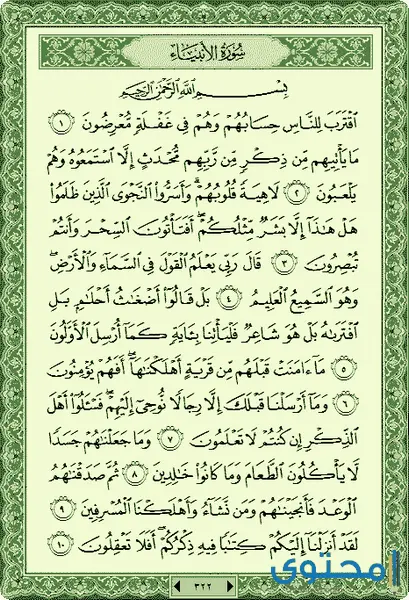 سُورَةُ الْأَنْبِيَاءِ
بِسْمِ اللَّهِ الرَّحْمَٰنِ الرَّحِيمِ
اقْتَرَبَ لِلنَّاسِ حِسَابُهُمْ وَهُمْ فِي غَفْلَةٍ مُّعْرِضُونَ ١
مَا يَأْتِيهِم مِّن ذِكْرٍ مِّن رَّبِّهِم مُّحْدَثٍ إِلَّا اسْتَمَعُوهُ وَهُمْ
يَلْعَبُونَ ٢ لَاهِيَةً قُلُوبُهُمْ ۗ وَأَسَرُّوا النَّجْوَى الَّذِينَ ظَلَمُوا
هَلْ هَٰذَا إِلَّا بَشَرٌ مِّثْلُكُمْ ۖ أَفَتَأْتُونَ السِّحْرَ وَأَنتُمْ
تُبْصِرُونَ ٣ قَالَ رَبِّي يَعْلَمُ الْقَوْلَ فِي السَّمَاءِ وَالْأَرْضِ ۖ
وَهُوَ السَّمِيعُ الْعَلِيمُ ٤ بَلْ قَالُوا أَضْغَاثُ أَحْلَامٍ بَلِ
افْتَرَاهُ بَلْ هُوَ شَاعِرٌ فَلْيَأْتِنَا بِآيَةٍ كَمَا أُرْسِلَ الْأَوَّلُونَ
٥ مَا آمَنَتْ قَبْلَهُم مِّن قَرْيَةٍ أَهْلَكْنَاهَا ۖ أَفَهُمْ يُؤْمِنُونَ
٦ وَمَا أَرْسَلْنَا قَبْلَكَ إِلَّا رِجَالًا نُّوحِي إِلَيْهِمْ ۖ فَسْـَٔلُوا أَهْلَ
الذِّكْرِ إِن كُنتُمْ لَا تَعْلَمُونَ ٧ وَمَا جَعَلْنَاهُمْ جَسَدًا
لَّا يَأْكُلُونَ الطَّعَامَ وَمَا كَانُوا خَالِدِينَ ٨ ثُمَّ صَدَقْنَاهُمُ
الْوَعْدَ فَأَنجَيْنَاهُمْ وَمَن نَّشَاءُ وَأَهْلَكْنَا الْمُسْرِفِينَ ٩
لَقَدْ أَنزَلْنَا إِلَيْكُمْ كِتَابًا فِيهِ ذِكْرُكُمْ ۖ أَفَلَا تَعْقِلُونَ ١٠
٣٢٢
محتوى